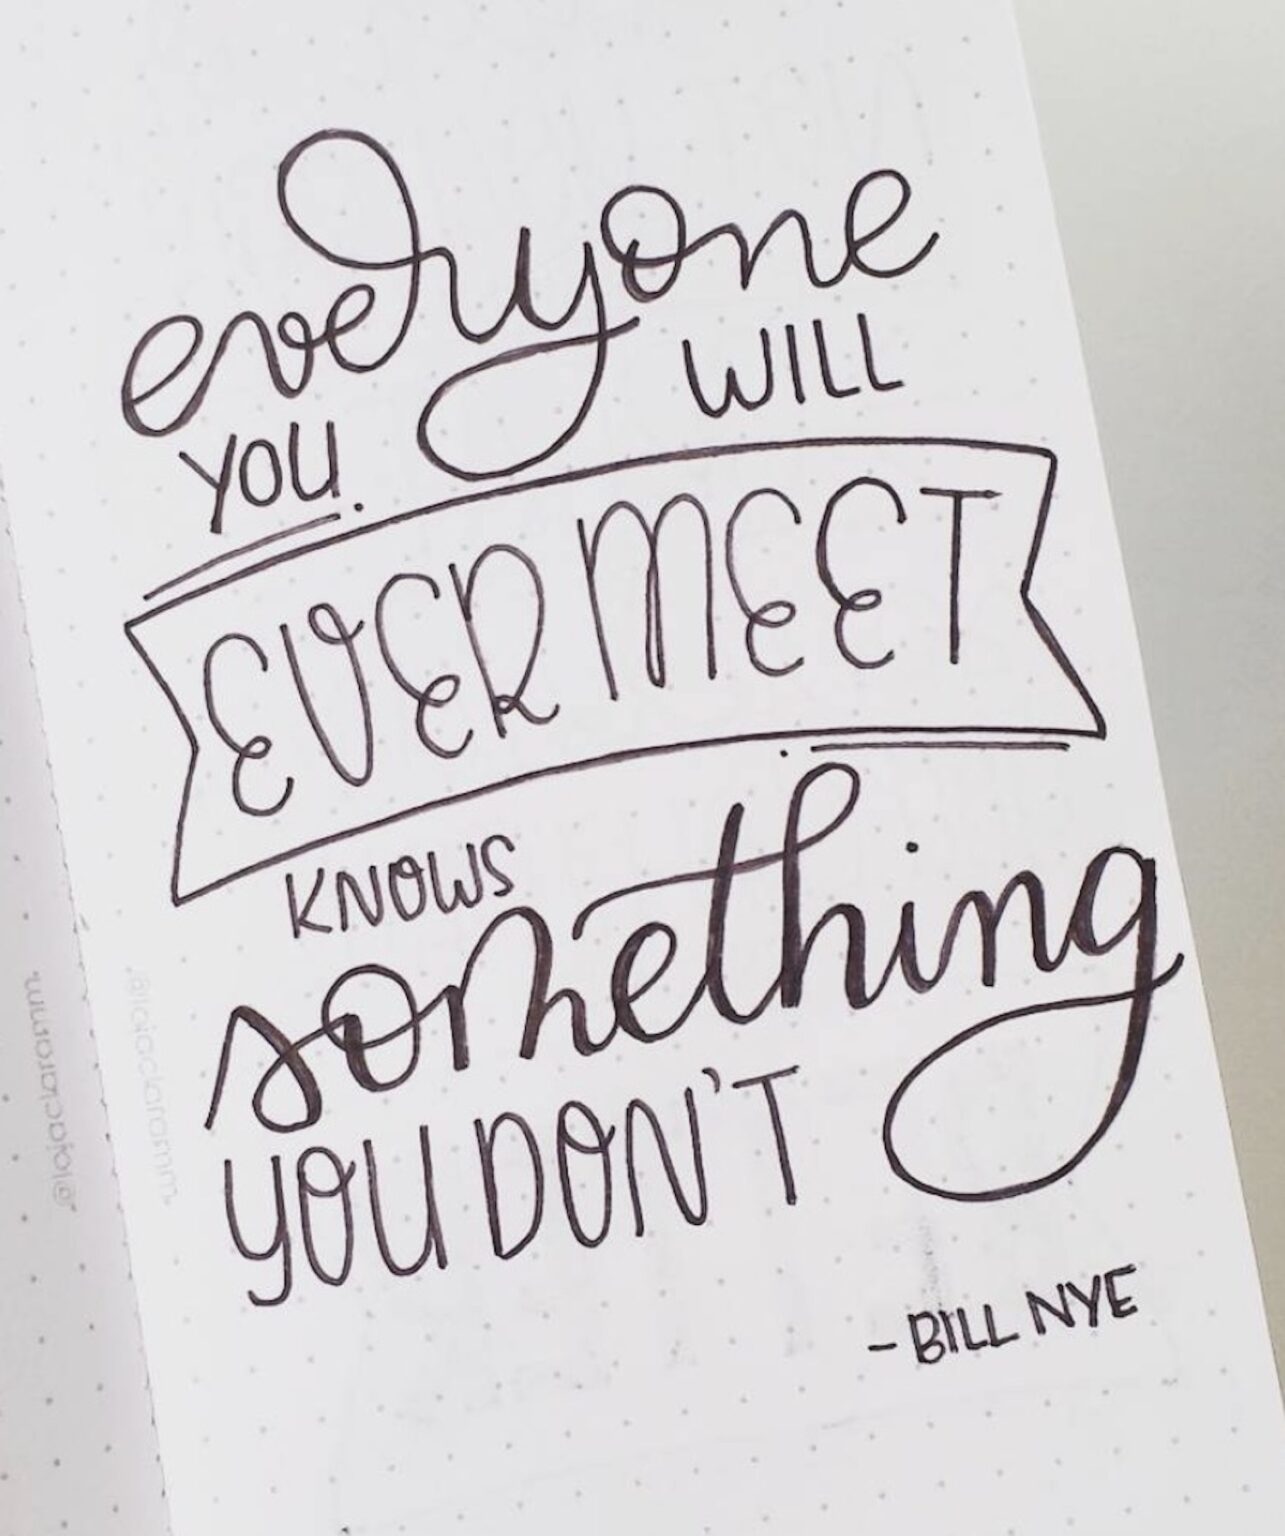 everyone
YOU WILL
EVER MEET
KNOWS
something
YOU DON'T
- BILL NYE
@lojaclaramm
@lojaclaramm